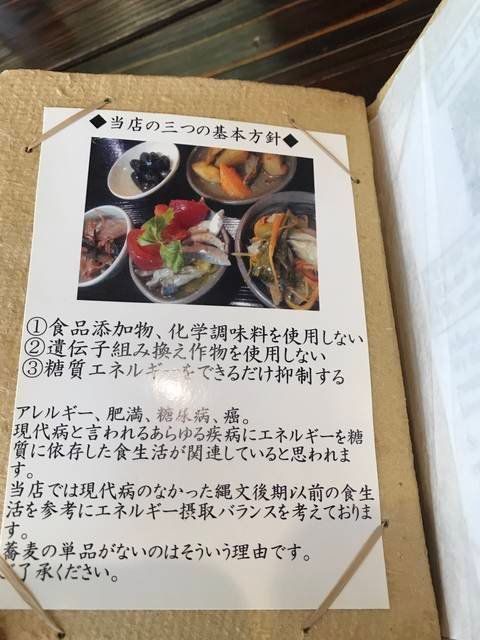 ◆当店の三つの基本方針◆
①食品添加物、化学調味料を使用しない
②遺伝子組み換え作物を使用しない
③糖質エネルギーをできるだけ抑制する
アレルギー、肥満、糖尿病、癌。
現代病と言われるあらゆる疾病にエネルギーを糖
質に依存した食生活が関連していると思われま
す。
当店では現代病のなかった縄文後期以前の食生
活を参考にエネルギー摂取バランスを考えておりま
す。
蕎麦の単品がないのはそういう理由です。
ご了承ください。